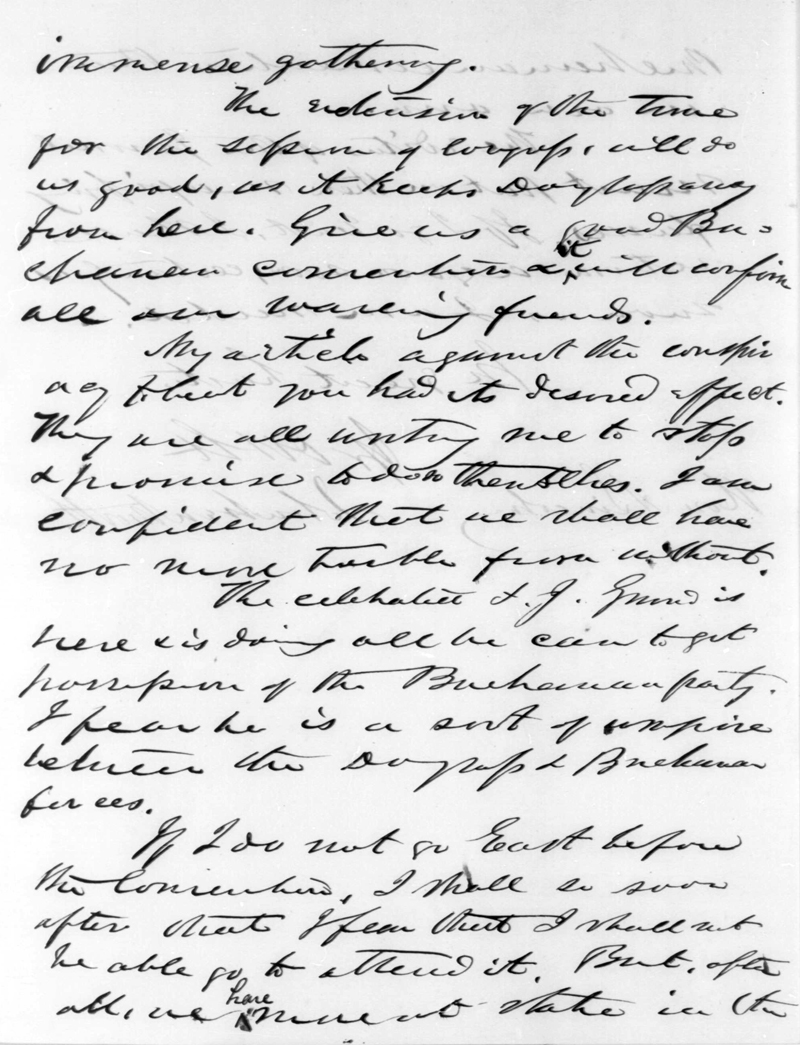 immense gathering.
The extension of the time
for the session of Congress, will do
us good, as it keeps Douglass away
from here. Give us a good Bu-
chanan convention & it will confirm
all our wavering friends.
My article against the conspir
acy to beat you had its desired effect.
They are all writing me to stop
& promise to do so themselves. I am
confident that we shall have
no more trouble from without.
The celebrated F. J. Grund is
here & is doing all he can to get
possession of the Buchanan party.
I fear he is a sort of umpire
between the Douglass & Buchanan
forces.
If I do not go East before
the Convention, I shall so soon
after that I fear that I shall not
be able go to attend it. But, after
all, we have at stake in the